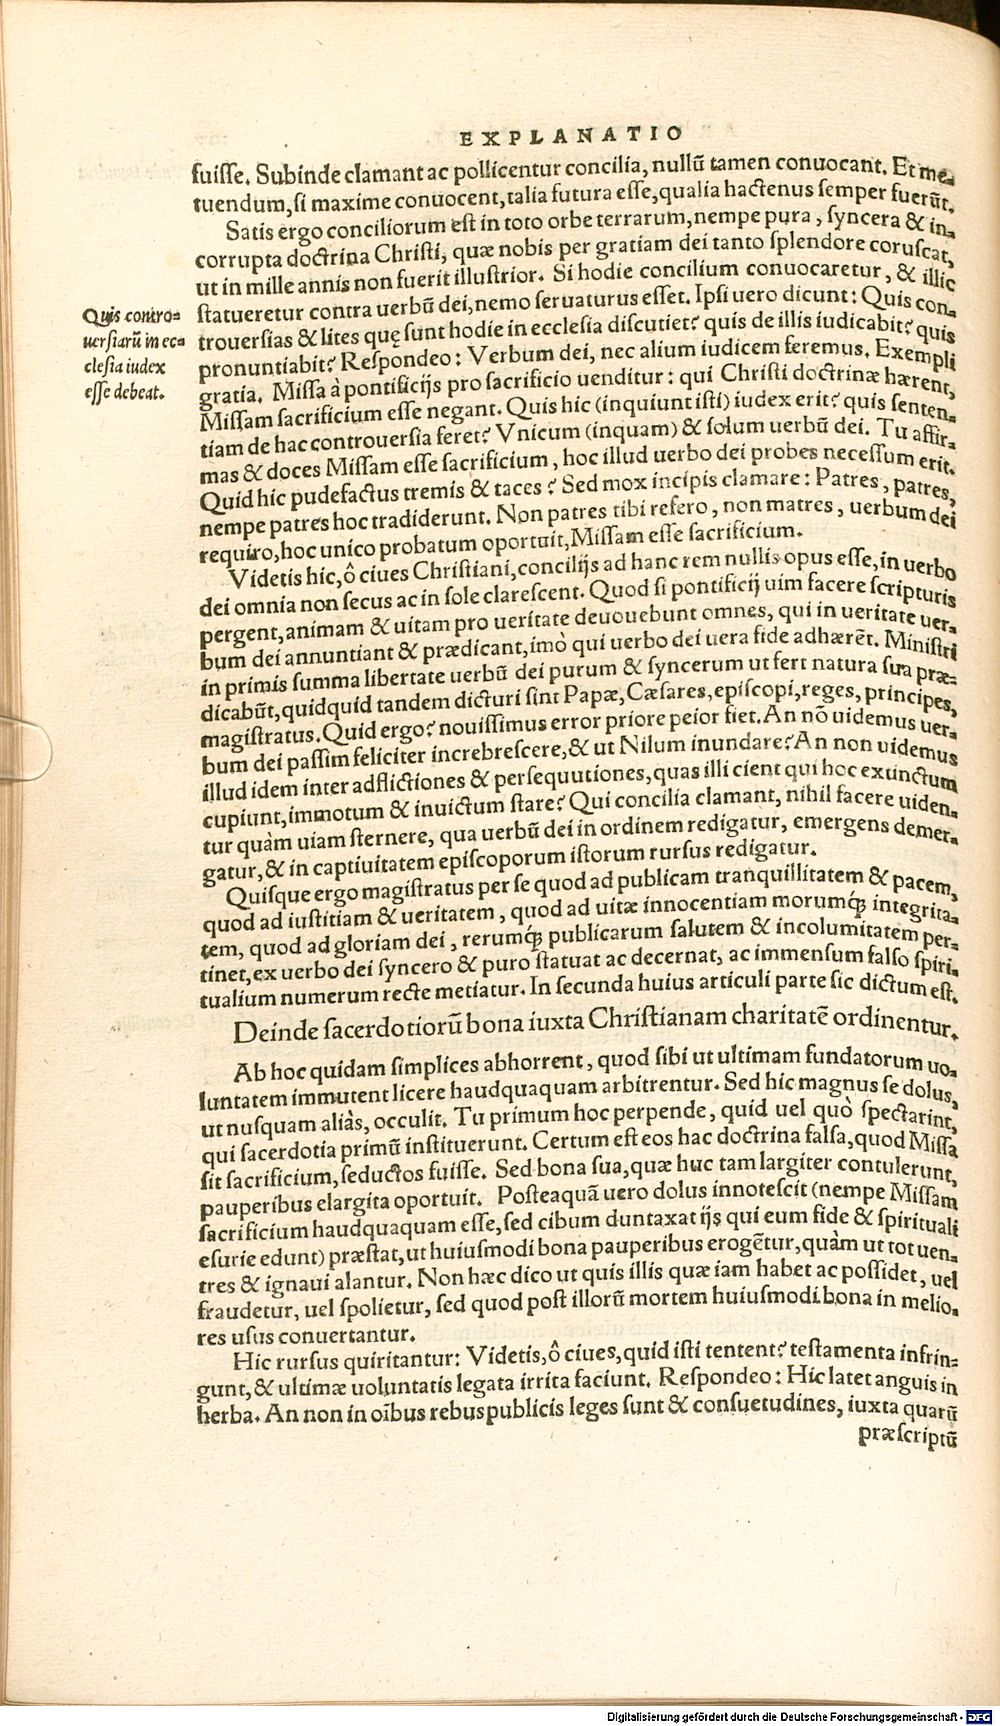 EXPLANATIO
fuisse. Subinde clamant ac pollicentur concilia, nullũ tamen conuocant. Et me⸗
tuendum, si maxime conuocent, talia futura esse, qualia hactenus semper fuerũt.
Satis ergo conciliorum est in toto orbe terrarum, nempe pura, syncera & in⸗
corrupta doctrina Christi, quæ nobis per gratiam dei tanto splendore coruscat,
ut in mille annis non fuerit illustrior. Si hodie concilium conuocaretur, & illic
statueretur contra uerbũ dei, nemo seruaturus esset. Ipsi uero dicunt: Quis con⸗
trouersias & lites quę sunt hodie in ecclesia discutiet? quis de illis iudicabit? quis
pronuntiabit? Respondeo: Verbum dei, nec alium iudicem feremus. Exempli
gratia. Missa à pontificijs pro sacrificio uenditur: qui Christi doctrinæ hærent,
Missam sacrificium esse negant. Quis hic (inquiunt isti) iudex erit? quis senten⸗
tiam de hac controuersia feret? Vnicum (inquam) & solum uerbũ dei. Tu affir⸗
mas & doces Missam esse sacrificium, hoc illud uerbo dei probes necessum erit.
Quid hic pudefactus tremis & taces? Sed mox incipis clamare: Patres, patres,
nempe patres hoc tradiderunt. Non patres tibi refero, non matres, uerbum dei
requiro, hoc unico probatum oportuit, Missam esse sacrificium.
Videtis hic, ô ciues Christiani, concilijs ad hanc rem nullis opus esse, in uerbo
dei omnia non secus ac in sole clarescent. Quod si pontificij uim facere scripturis
pergent, animam & uitam pro ueritate deuouebunt omnes, qui in ueritate uer⸗
bum dei annuntiant & prædicant, imò qui uerbo dei uera fide adhærẽt. Ministri
in primis summa libertate uerbũ dei purum & syncerum ut fert natura sua præ⸗
dicabũt, quidquid tandem dicturi sint Papæ, Cæsares, episcopi, reges, principes,
magistratus. Quid ergo? nouissimus error priore peior fiet. An nõ uidemus uer⸗
bum dei passim feliciter increbrescere, & ut Nilum inundare? An non uidemus
illud idem inter adflictiones & persequutiones, quas illi cient qui hoc extinctum
cupiunt, immotum & inuictum stare? Qui concilia clamant, nihil facere uiden⸗
tur quàm uiam sternere, qua uerbũ dei in ordinem redigatur, emergens demer⸗
gatur, & in captiuitatem episcoporum istorum rursus redigatur.
Quisque ergo magistratus per se quod ad publicam tranquillitatem & pacem,
quod ad iustitiam & ueritatem, quod ad uitæ innocentiam morumq́; integrita⸗
tem, quod ad gloriam dei, rerumq́; publicarum salutem & incolumitatem per⸗
tinet, ex uerbo dei syncero & puro statuat ac decernat, ac immensum falso spiri⸗
tualium numerum recte metiatur. In secunda huius articuli parte sic dictum est.
Deinde sacerdotiorũ bona iuxta Christianam charitatẽ ordinentur.
Ab hoc quidam simplices abhorrent, quod sibi ut ultimam fundatorum uo⸗
luntatem immutent licere haudquaquam arbitrentur. Sed hic magnus se dolus,
ut nusquam aliàs, occulit. Tu primum hoc perpende, quid uel quò spectarint,
qui sacerdotia primũ instituerunt. Certum est eos hac doctrina falsa, quod Missa
sit sacrificium, seductos fuisse. Sed bona sua, quæ huc tam largiter contulerunt,
pauperibus elargita oportuit. Posteaquã uero dolus innotescit (nempe Missam
sacrificium haudquaquam esse, sed cibum duntaxat ijs qui eum fide & spirituali
esurie edunt) præstat, ut huiusmodi bona pauperibus erogẽtur, quàm ut tot uen⸗
tres & ignaui alantur. Non hæc dico ut quis illis quæ iam habet ac possidet, uel
fraudetur, uel spolietur, sed quod post illorũ mortem huiusmodi bona in melio⸗
res usus conuertantur.
Hic rursus quiritantur: Videtis, ô ciues, quid isti tentent? testamenta infrin⸗
gunt, & ultimæ uoluntatis legata irrita faciunt. Respondeo: Hic latet anguis in
herba. An non in oĩbus rebuspublicis leges sunt & consuetudines, iuxta quarũ
præscriptũ
Quis contro⸗
uersiarũ in ec⸗
clesia iudex
esse debeat.
Digitalisierung gefördert durch die Deutsche Forschungsgemeinschaft - DFG